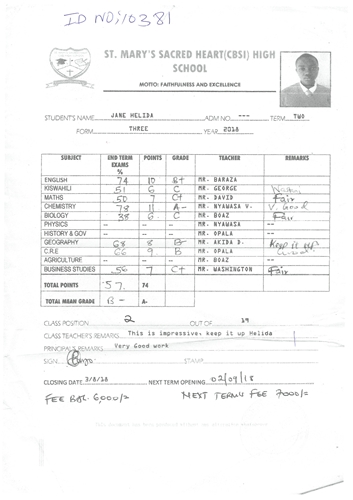 ID NO: 10381
ST. MARY'S SACRED HEART(CBSI) HIGH SCHOOL
MOTTO: FAITHFULNESS AND EXCELLENCE
STUDENT'S NAME JANE HELIDA ADM NO --- TERM TWO
FORM THREE YEAR 2018
SUBJECT END TERM EXAMS % POINTS GRADE TEACHER REMARKS
ENGLISH 74 10 B+ MR. BARAZA
KISWAHILI 51 6 C MR. GEORGE
MATHS 50 7 C+ MR. DAVID Fair
CHEMISTRY 78 11 A- MR. NYAWASA V. V. Good
BIOLOGY 38 6 C MR. BOAZ Fair
PHYSICS -- -- -- MR. NYAWASA --
HISTORY & GOV -- -- -- MR. OPALA --
GEOGRAPHY 68 8 B- MR. AKIDA D. Keep it up
C.R.E 66 9 B MR. OPALA
AGRICULTURE -- -- -- MR. BOAZ --
BUSINESS STUDIES 56 7 C+ MR. WASHINGTON Fair
TOTAL POINTS 57. 74
TOTAL MEAN GRADE B- A-
CLASS POSITION 2 OUT OF 19
CLASS TEACHER'S REMARKS This is impressive, keep it up Helida
PRINCIPAL'S REMARKS Very Good work
SIGN STAMP
CLOSING DATE 3/8/18 NEXT TERM OPENING 02/09/18
FEE BAL. 6,000/= NEXT TERMS FEE 7000/=